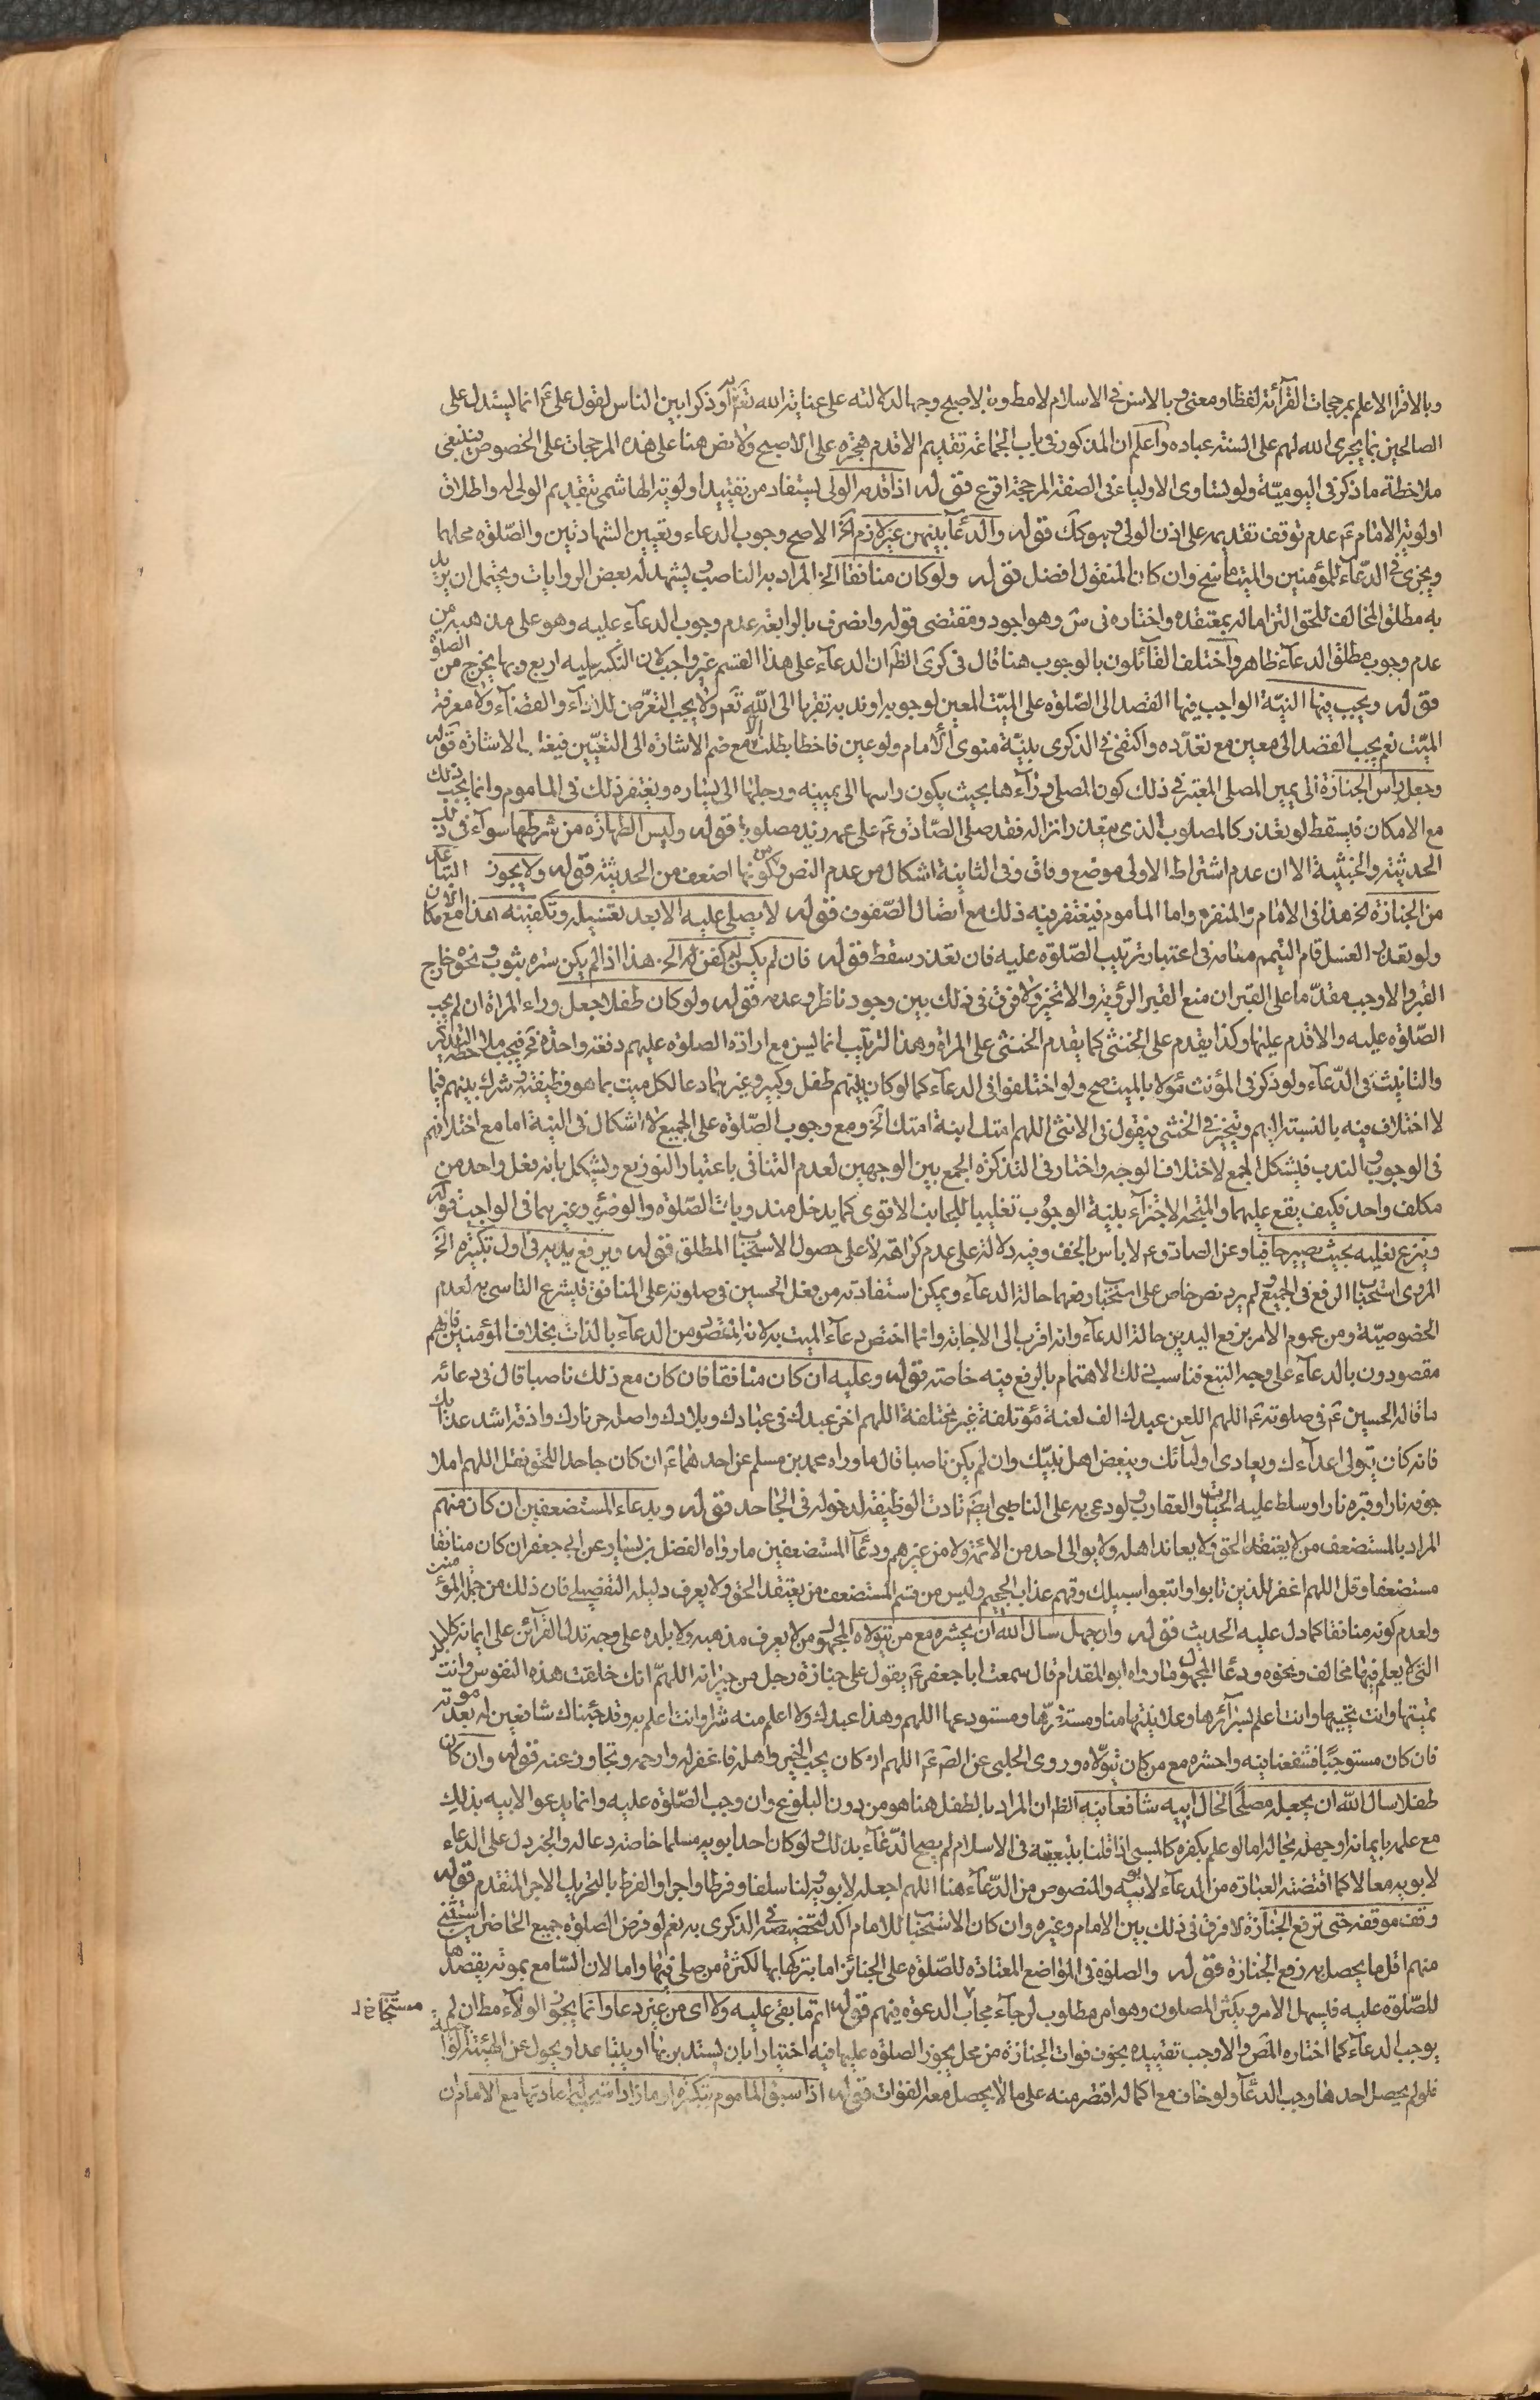 وبالاقرا الاعلم بمرجحات القرآئة لفظا ومعنى وبالاسن في الاسلام لا مطلقا وبالاصبح وجها لدلالته على عناية الله تع به او ذكرا بين الناس لقول علي ع انما يستدل على
الصالحين بما يجرى الله لهم على السنة عباده واعلم ان المذكور في باب الجماعة تقديم الاقدم هجرة على الاصبح ولا نص هنا على هذه المرجحات على الخصوص فينبغي
ملاحظة ما ذكر في اليومية ولو تساوى الاولياء في الصفة المرجحة اقرع قوله اذا قدمه الولى يستفاد من تقييد اولوية الهاشمى بتقديم الولى له واطلاق
اولوية الامام ع عدم توقف تقديمه على اذن الولى وهو كك قوله والدعآ بينهن غير لازم آلخ الاصح وجوب الدعاء وتعيين الشهادتين والصلوة محلهما
ويجزى في الدعآء للمؤمنين والميت ما سنح وان كان المنقول افضل قوله ولو كان منافقا الخ المراد به الناصب ويشهد له بعض الروايات ويحتمل ان يريد
به مطلق المخالف للحق التزاما له بمعتقده واختاره في س وهو اجود ومقتضى قوله وانصرف بالرابعة عدم وجوب الدعآء عليه وهو على مذهبه من
عدم وجوب مطلق الدعآء ظاهر واختلف القآئلون بالوجوب هنا قال في كرى الظ ان الدعآء على هذا القسم غير واجب لان التكبير عليه اربع وبها يخرج من الصلوة
قوله ويجب فيها النية الواجب فيها القصد الى الصلوة على الميت المعين لوجوبه او ندبه تقربا الى الله تع ولا يجب التعرض للادآء والقضآء ولا معرفة
الميت نعم يجب القصد الى معين مع تعدده واكتفى في الذكرى بنية منوى الامام ولو عين فاخطا بطلت الا مع ضم الاشارة الى التعيين فيغلب الاشارة قوله
وجعل راس الجنازة الى يمين المصلى المعتبر في ذلك كون المصلى ورآءها بحيث يكون راسها الى يمينه ورجلها الى يساره ويغتفر ذلك في الماموم وانما يجب ذلك
مع الامكان فيسقط لو تعذر كالمصلوب الذى يتعذر انزاله فقد صلى الصادق ع على عمه زيد مصلوبا قوله وليس الطهارة من شرطها سوآء في ذلك
الحدثية والخبثية الا ان عدم اشتراط الاولى موضع وفاق وفى الثانية اشكال من عدم النص ومن كونها اضعف من الحدثية قوله ولا يجوز التباعد
من الجنازة الخ هذا في الامام والمنفرد واما الماموم فيغتفر فيه ذلك مع اتصال الصفوف قوله لا يصلى عليه الا بعد تغسيله وتكفينه هذا مع الامكان
ولو تعذر الغسل قام التيمم مقامه في اعتبار ترتيب الصلوة عليه فان تعذر سقط قوله فان لم يكن له كفن الخ هذا اذا لم يكن ستره بثوب ونحوه خارج
القبر والا وجب مقدما على القبر ان منع القبر الرؤية والا تخير ولا فرق في ذلك بين وجود ناظر وعدمه قوله ولو كان طفلا جعل وراء المراة ان لم يجب
الصلوة عليه والا قدم عليها وكذا يقدم على الخنثى كما يقدم الخنثى على المراة وهذا الترتيب انما ليس مع ارادة الصلوة عليهم دفعة واحدة فح يجب ملاحظة التذكير
والتانيث في الدعآء ولو ذكر في المؤنث مؤلا بالميت صح ولو اختلفوا في الدعآء كما لو كان بينهم طفل وكبير وغيرهما دعا لكل ميت بما هو وظيفته وشرك بينهم فيما
لا اختلاف فيه بالنسبة اليهم ويتخير في الخنثى فيقول في الانثى اللهم امتك ابنة امتك الخ ومع وجوب الصلوة على الجميع لا اشكال في النية اما مع اختلافهم
في الوجوب والندب فيشكل الجمع لاختلاف الوجه واختار في التذكرة الجمع بين الوجهين لعدم التنافى باعتبار التوزيع ويشكل بانه فعل واحد من
مكلف واحد فكيف يقع عليهما والمتجه الاجتزآء بنية الوجوب تغليبا للجانب الاقوى كما يدخل مندوبات الصلوة والوضوء وغيرهما في الواجب قوله
وينزع نعليه بحيث يصير حافيا وعن الصادق ع لا باس بالخف وفيه دلالة على عدم كراهته لا على حصول الاستحباب المطلق قوله ويرفع يديه في اول تكبيره الخ
المروى استحباب الرفع في الجميع ولم يرد نص خاص على استحباب رفعهما حالة الدعآء ويمكن استفادته من فعل الحسين في صلوته على المنافق فيشرع التاسى به لعدم
الخصوصية ومن عموم الامر برفع اليدين حالة الدعآء وانه اقرب الى الاجابة وانما اختص دعآء الميت به لانه المقصود من الدعآء بالذات بخلاف المؤمنين فانهم
مقصودون بالدعآء على وجه التبع فناسب ذلك الاهتمام بالرفع فيه خاصة قوله وعليه ان كان منافقا فان كان مع ذلك ناصبا قال في دعائه
ما قاله الحسين ع في صلوته ع اللهم العن عبدك الف لعنة مؤتلفة غير مختلفة اللهم اخز عبدك في عبادك وبلادك واصله حر نارك واذقه اشد عذابك
فانه كان يتولى اعدآءك ويعادى اوليآئك ويبغض اهل بيت نبيك وان لم يكن ناصبا قال ما رواه محمد بن مسلم عن احدهما ع ان كان جاحدا للحق فقل اللهم املا
جوفه نارا وقبره نارا وسلط عليه الحيات والعقارب ولو دعى به على الناصبى ايض تادت الوظيفة لدخوله في الجاحد قوله وبدعاء المستضعفين ان كان منهم
المراد بالمستضعف من لا يعتقد الحق ولا يعاند اهله ولا يوالى احد من الائمة ولا من غيرهم ودعآ المستضعفين ما رواه الفضل بن يسار عن ابي جعفر ان كان منافقا
مستضعفا وقل اللهم اغفر للذين تابوا واتبعوا سبيلك وقهم عذاب الجحيم وليس من قسم المستضعف من يعتقد الحق ولا يعرف دليله التفصيلى فان ذلك من جملة المؤمنين
ولعدم كونه منافقا كما دل عليه الحديث قوله وان جهل سال الله ان يحشره مع من يتولاه المجهول من لا يعرف مذهبه ولا بلده على وجه تدل القرآئن على ايمانه كالبلد
التى لا يعلم فيها مخالف ونحوه ودعا المجهول ما رواه ابو المقدام قال سمعت ابا جعفر ع يقول على جنازة رجل من جيرانه اللهم انك خلقت هذه النفوس وانت
تميتها وانت تحييها وانت اعلم بسرآئرها وعلانيتها منا ومستقرها ومستودعها اللهم وهذا عبدك ولا اعلم منه شرا وانت اعلم به وقد جئناك شافعين له بعد موته
فان كان مستوجبا فشفعنا فيه واحشره مع من كان يتولاه وروى الحلبى عن الص ع اللهم ان كان يحب الخير واهله فاغفر له وارحمه وتجاوز عنه قوله وان كان
طفلا سال الله ان يجعله مصلحا لحال ابيه شافعا فيه الظ ان المراد بالطفل هنا هو من دون البلوغ وان وجب الصلوة عليه وانما يدعو لابيه بذلك
مع علمه بايمانه او جهله بحاله اما لو علم بكفره كالمسبى اذا قلنا بتبعيته في الاسلام لم يصح الدعآء بذلك ولو كان احد ابويه مسلما خاصة دعا له والخبر دل على الدعاء
لابويه معا لا كما اقتضته العبارة من الدعآء لابيه والمنصوص من الدعآء هنا اللهم اجعله لابويه ولنا سلفا وفرطا واجرا والفرط بالتحريك الاجر المتقدم قوله
وقف موقفه حتى ترفع الجنازة لا فرق في ذلك بين الامام وغيره وان كان الاستحباب للامام اكد لتخصيصه في الذكرى به نعم لو فرض الصلوة جميع الحاضرين استثنى
منهم اقل ما يحصل به رفع الجنازة قوله والصلوة في المواضع المعتادة للصلوة على الجنائز اما بتركها بها لكثرة من صلى فيها واما لان السامع بموته يقصدها
للصلوة عليه فليسهل الامر ويكثر المصلون وهو امر مطلوب لرجآء مجاب الدعوة فيهم قوله اتم ما بقى عليه ولاء اى من غير دعا وانما يجوز الولآء مط ان لم
يوجب الدعآء كما اختاره المص والا وجب تقييده بخوف فوات الجنازة من محل يجوز الصلوة عليها فيه اختيارا بان يستدبر بها او يتباعد او يحول عن الهيئة
فلو لم يحصل احدها وجب الدعآ ولو خاف مع اكماله اقتصر منه على ما لا يحصل معه الفوات قوله اذا سبق الماموم بتكبيرة او ما زاد استحب له اعادتها مع الامام ان